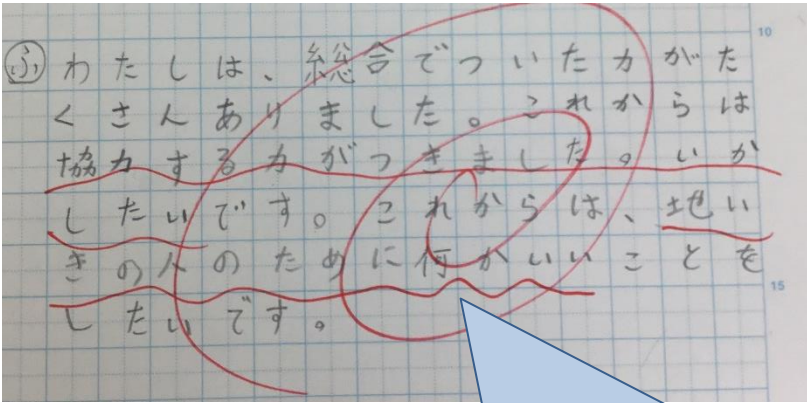 ふ わたしは、総合でついた力がた
くさんありました。これからは
協力する力がつきました。いか
したいです。これからは、地い
きの人のために何かいいことを
したいです。
10
15